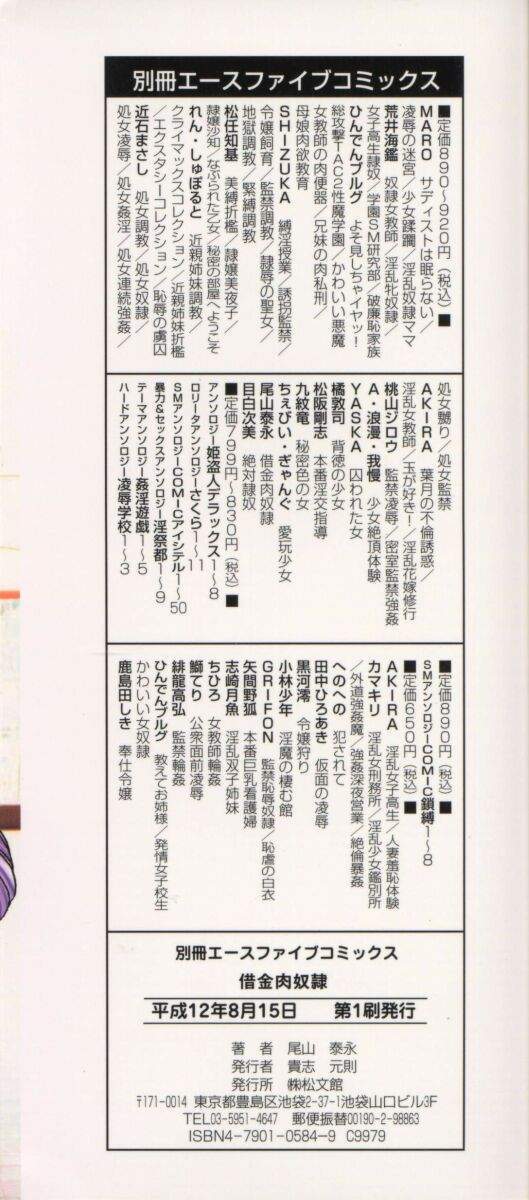 別冊エースファイブコミックス
■定価890～920円（税込）■
MARO サディストは眠らない／
凌辱の迷宮／少女蹂躙／淫乱奴隷ママ
荒井海鑑 奴隷女教師／淫乱牝奴隷／
女子高生隷奴／学園SM研究部／破廉恥家族
ひんでんブルグ よそ見しちゃイヤッ！
総攻撃TAC2性魔学園／かわいい悪魔
女教師の肉便器／兄妹の肉私刑／
母娘肉欲教育
SHIZUKA 縛淫授業／誘拐監禁／
令嬢飼育／監禁調教／隷辱の聖女／
地獄調教／緊縛調教
松任知基 美縛折檻／隷嬢美夜子／
隷嬢沙知／なぶられた乙女／秘密の部屋へようこそ
れん・しゅぽると 近親姉妹調教／
クライマックスコレクション／近親姉妹折檻
／エクスタシーコレクション／恥辱の虜囚
近石まさし 処女調教／処女奴隷／
処女凌辱／処女姦淫／処女連続強姦／
処女嬲り／処女監禁
AKIRA 葉月の不倫誘惑／
淫乱女教師／玉が好き！／淫乱花嫁修行
桃山ジロウ 監禁凌辱／密室監禁強姦
A・浪漫・我慢 少女絶頂体験
YASKA 囚われた女
橘敦司 背徳の少女
松阪剛志 本番淫交指導
九紋竜 秘密色の女
ちぇびい・ぎゃんぐ 愛玩少女
尾山泰永 借金肉奴隷
目白次美 絶対隷奴
■定価799円～830円（税込）■
アンソロジー姫盗人デラックス1～8
ロリータアンソロジーさくら1～11
SMアンソロジーCOMICアイシテル1～50
暴力&セックスアンソロジー淫祭都1～9
テーマアンソロジー姦淫遊戯1～5
ハードアンソロジー凌辱学校1～3
■定価890円（税込）■
SMアンソロジーCOMIC鎖縛1～8
■定価650円（税込）■
AKIRA 淫乱女子高生／人妻羞恥体験
カマキリ 淫乱女刑務所／淫乱少女鑑別所
／外道強姦魔／強姦深夜営業／絶倫暴姦
へのへの 犯されて
田中ひろあき 仮面の凌辱
黒河澪 令嬢狩り
小林少年 淫魔の棲む館
GRIFON 監禁恥辱奴隷／恥虐の白衣
矢間野狐 本番巨乳看護婦
志崎月魚 淫乱双子姉妹
ちひろ 女教師輪姦
鰤てり 公衆面前凌辱
緋龍高弘 監禁輪姦
ひんでんブルグ 教えてお姉様／発情女子校生
かわいい女奴隷
鹿島田しき 奉仕令嬢
別冊エースファイブコミックス
借金肉奴隷
平成12年8月15日 第1刷発行
著者 尾山 泰永
発行者 貴志 元則
発行所 ㈱松文館
〒171-0014 東京都豊島区池袋2-37-1池袋山口ビル3F
TEL03-5951-4647 郵便振替00190-2-98863
ISBN4-7901-0584-9 C9979